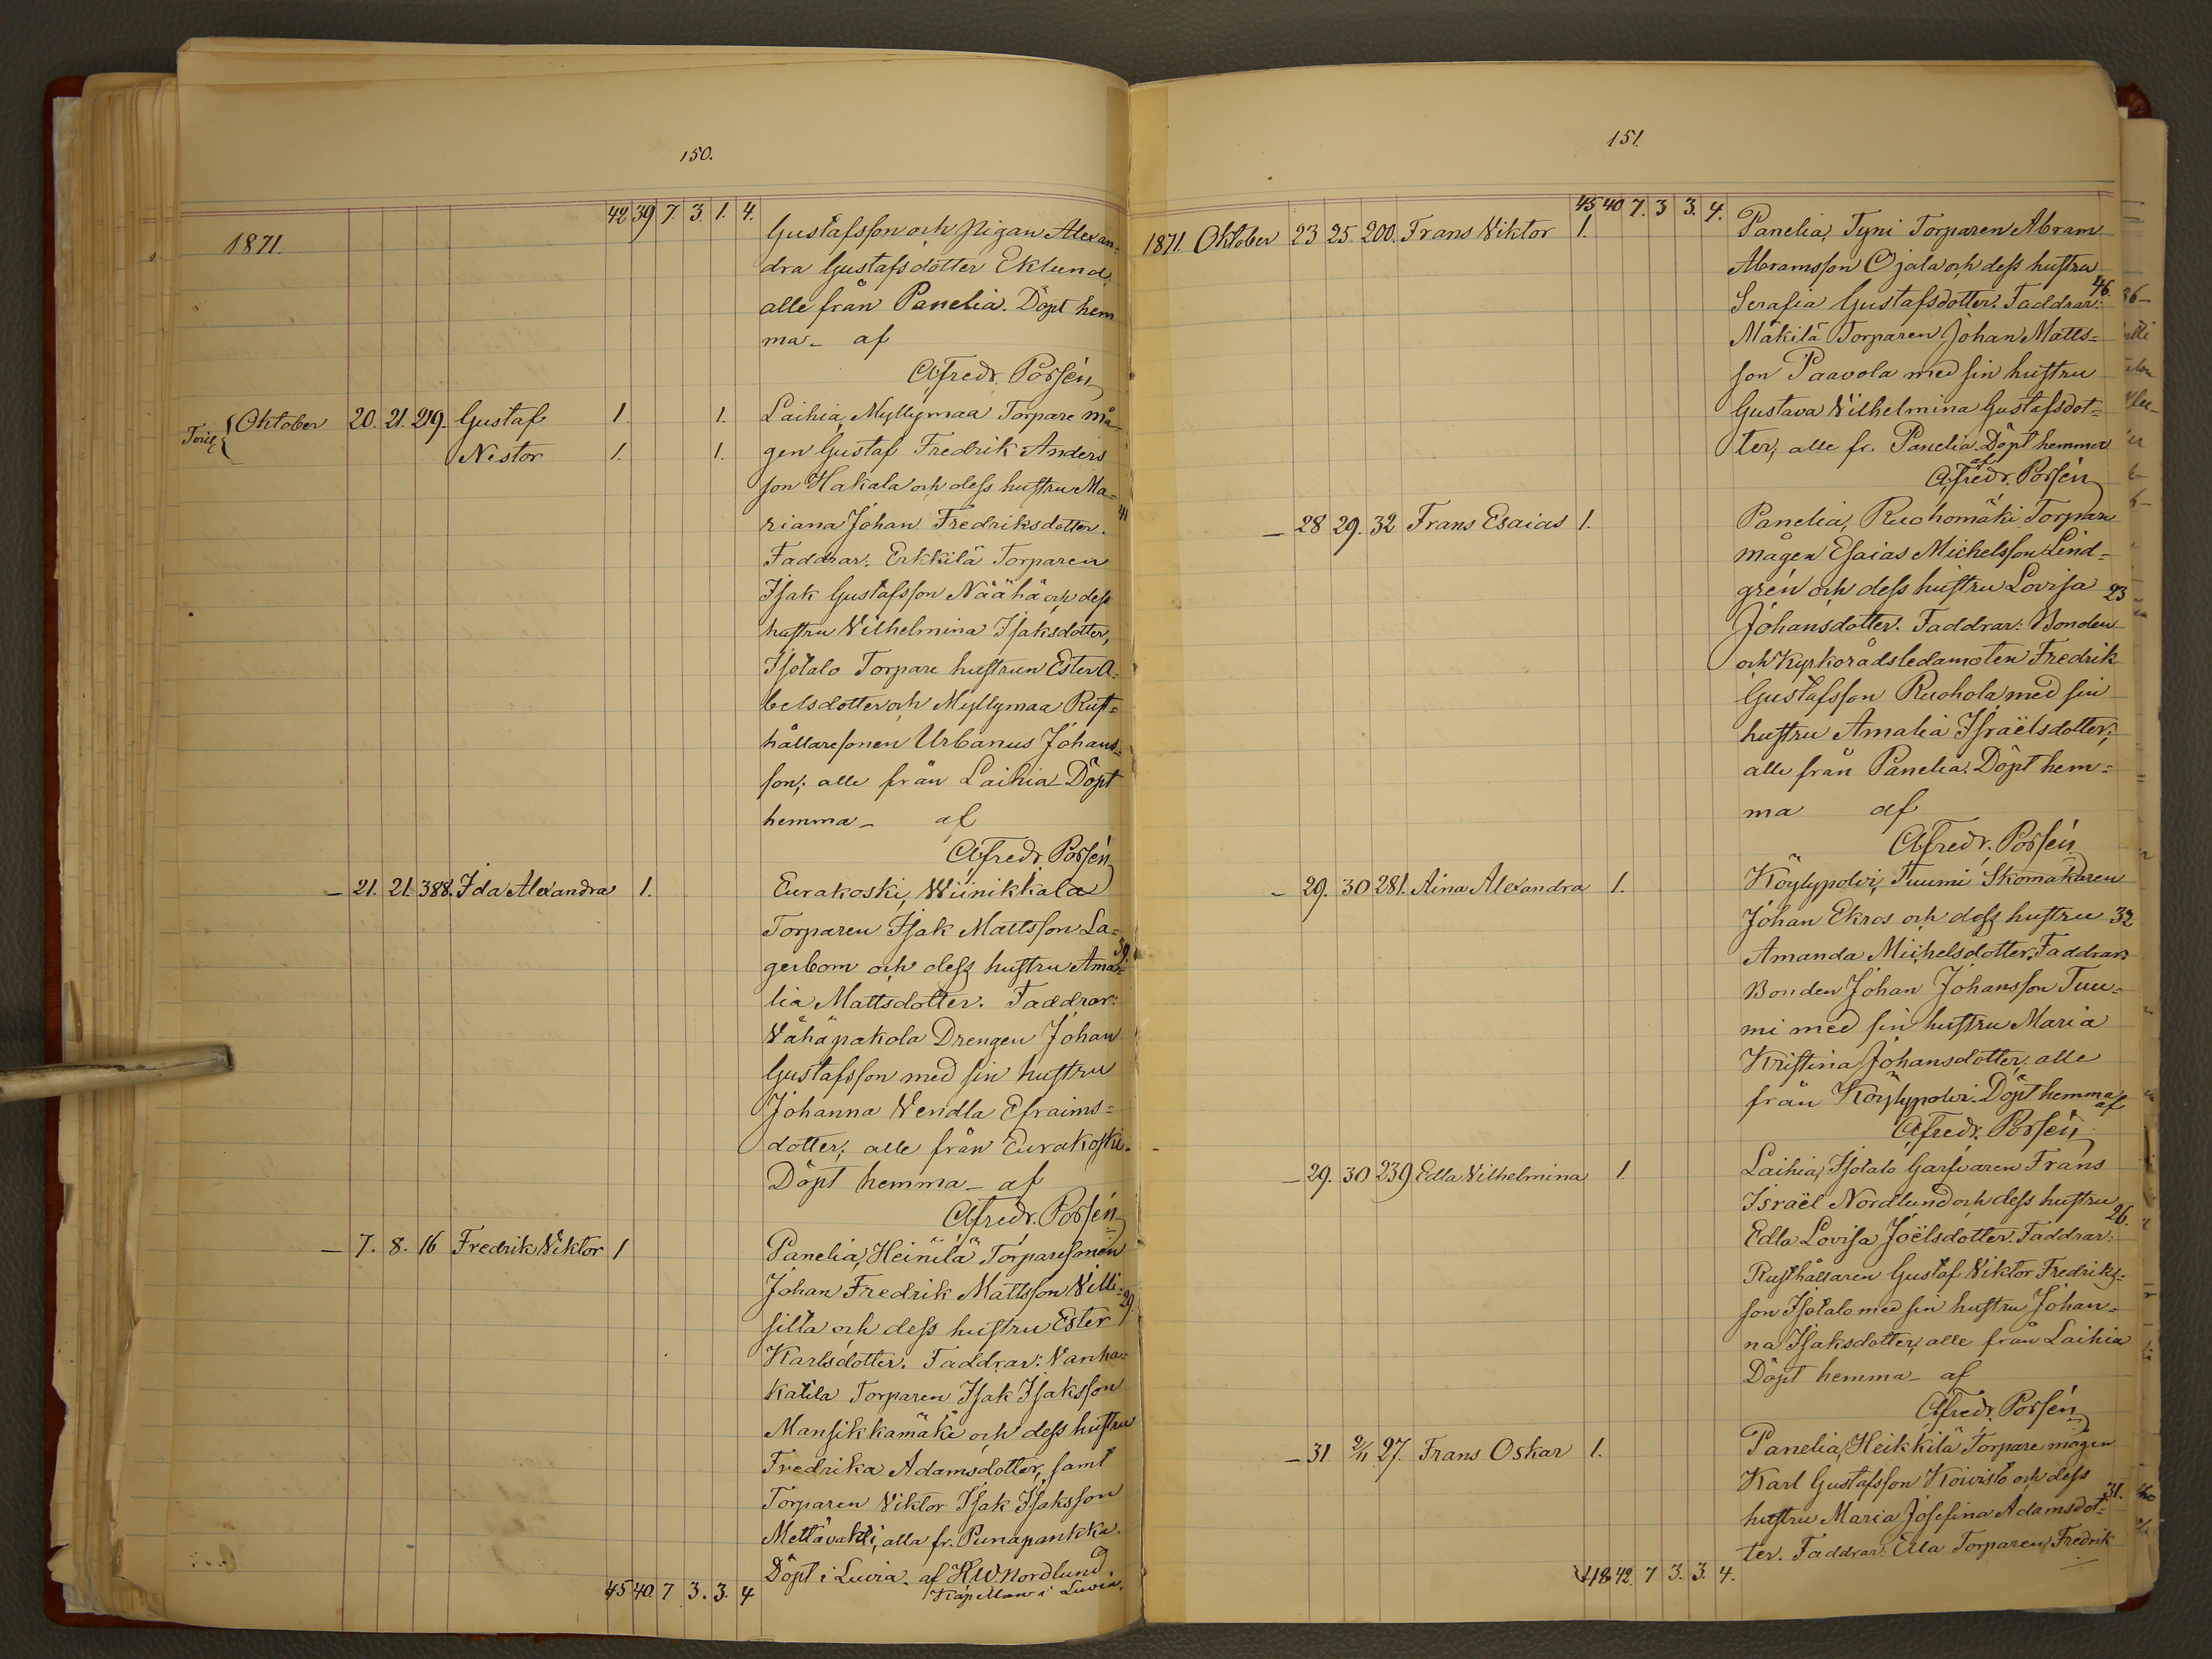 150.
42 39 7. 3. 1. 4.
1871.
Gustafsson och Pigan Alexan-
dra Gustafsdotter Eklund,
alle från Panelia. Döpt hem
ma - af
Alfredr. Porsén
Oktober 20. 21. 219. Gustaf 1. 1. Laihia, Myllymaa Torpare må-
Nestor 1. 1. gen Gustaf Fredrik Anders
son Hakala och dess hustru Ma-
riana Johan Fredriksdotter. 41
Faddrar: Erkkilä Torparen
Isak Gustafsson Näähä och dess
hustru Vilhelmina Isaksdotter,
Isotalo Torpare hustrun Ester A-
belsdotter och Myllymaa Rust-
hållaresonen Urbanus Johans-
son; alle från Laihia Döpt
hemma - af
Alfredr. Porsén
- 21. 21. 388. Ida Alexandra 1. Eurakoski, Wiinikkala
Torparen Isak Mattsson La-
gerbom och dess hustru Ama- 39.
lia Mattsdotter. Faddrar:
Vähäpakola Drengen Johan
Gustafsson med sin hustru
Johanna Vendla Efraims-
dotter; alle från Eurakoski.
Döpt hemma - af
Alfredr. Porsén
- 7. 8. 16 Fredrik Viktor 1 Panelia, Heinilä Torparesonen
Johan Fredrik Mattsson Villi- 29.
silta och dess hustru Ester
Karlsdotter. Faddrar: Vanha-
katila Torparen Isak Isaksson
Mansikkamäki och dess hustru
Fredrika Adamsdotter, samt
Torparen Viktor Isak Isaksson
Mettävahti, alla fr. Punapankka.
Döpt i Luvia. af K W Nordlund
Kapellan i Luvia.
45 40 7 3. 3. 4
151.
45 40 7. 3 3. 4.
1871. Oktober 23 25. 200. Frans Viktor 1. Panelia, Tyni Torparen Abram
Abramsson Ojala och dess hustru
Serafia Gustafsdotter. Faddrar: 46.
Mäkilä Torparen Johan Matts-
son Paavola med sin hustru
Gustava Vilhelmina Gustafsdot-
ter; alle fr. Panelia. Döpt hemma
af
Alfredr. Porsén
- 28 29. 32 Frans Esaias 1. Panelia, Ruohomäki Torpare
mågen Esaias Michelsson Lind-
grén och dess hustru Lovisa 23
Johansdotter. Faddrar: Bonden
och Kyrkorådsledamoten Fredrik
Gustafsson Ruohola med sin
hustru Amalia Israëlsdotter;
alle från Panelia. Döpt hem-
ma af
Alfredr. Porsén
- 29. 30 281. Aina Alexandra 1. Köylypolvi, Tuumi Skomakaren
Johan Ekros och dess hustru 32
Amanda Michelsdotter. Faddrar:
Bonden Johan Johansson Tuu-
mi med sin hustru Maria
Kristina Johansdotter, alle
från Köylypolvi. Döpt hemma af
Alfredr. Porsén
- 29. 30 239 Edla Vilhelmina 1. Laihia, Isotalo Garfvaren Frans
Israël Nordlund och dess hustru 26.
Edla Lovisa Joëlsdotter. Faddrar:
Rusthållaren Gustaf Viktor Fredriks-
son Isotalo med sin hustru Johan-
na Isaksdotter, alle från Laihia
Döpt hemma - af
Alfredr. Porsén
- 31. 2/11 27. Frans Oskar 1. Panelia, Heikkilä Torpare mågen
Karl Gustafsson Koivisto och dess
hustru Maria Josefina Adamsdot- 31.
ter. Faddrar: Ella Torparen Fredrik
48 42. 7 3. 3. 4.